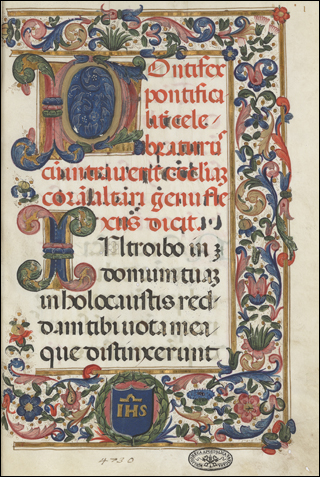 1
Pontifex
pontifica
liter cele
braturꝰ
cum intrauerit eccliaꝫ
coram altari genufle
xus dicit
INtroibo in
domum tuaꝫ
in holocaustis red
dam tibi uota mea
que distinxerunt
IHS